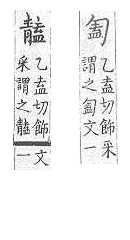 匎
乙盍切飾采
謂之匎文一
乙盍切飾
采謂之
文
一